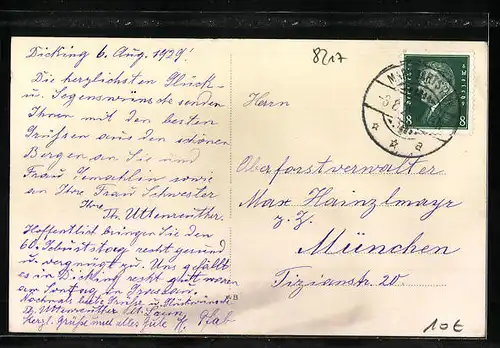 Dicking 6. Aug. 1929!
Die herzlichsten Glück-
u. Segenswünsche senden
Ihnen mit den besten
Grüßen aus den schönen
Bergen an Sie und
Frau Gemahlin sowie
an Ihre Frau Schwester
Ihre
Th. Uttenreuther.
Hoffentlich bringen Sie den
60. Geburtstag recht gesund
u. vergnügt zu. Uns gefällt
es in Dicking recht gut waren
am Sonntag in
Nochmals beste Grüße u. Glückwünsche
Th. Uttenreuther
Herzl. Grüße und alles Gute
8217
Herrn
Oberforstverwalter
Max Hainzlmayr
z. Z.
München
Tizianstr. 20
10€
8 8